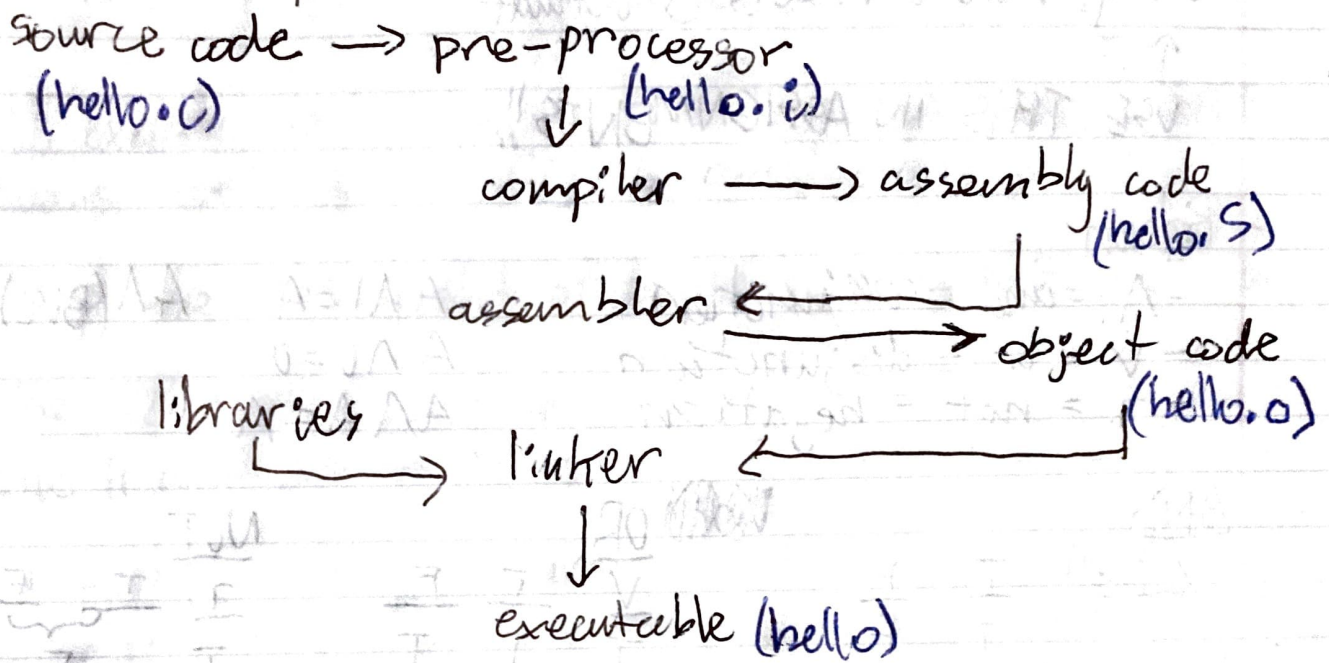 source code → pre-processor
(hello.c) (hello.i)
compiler → assembly code
(hello.s)
assembler
object code
(hello.o)
libraries
linker
executable (hello)